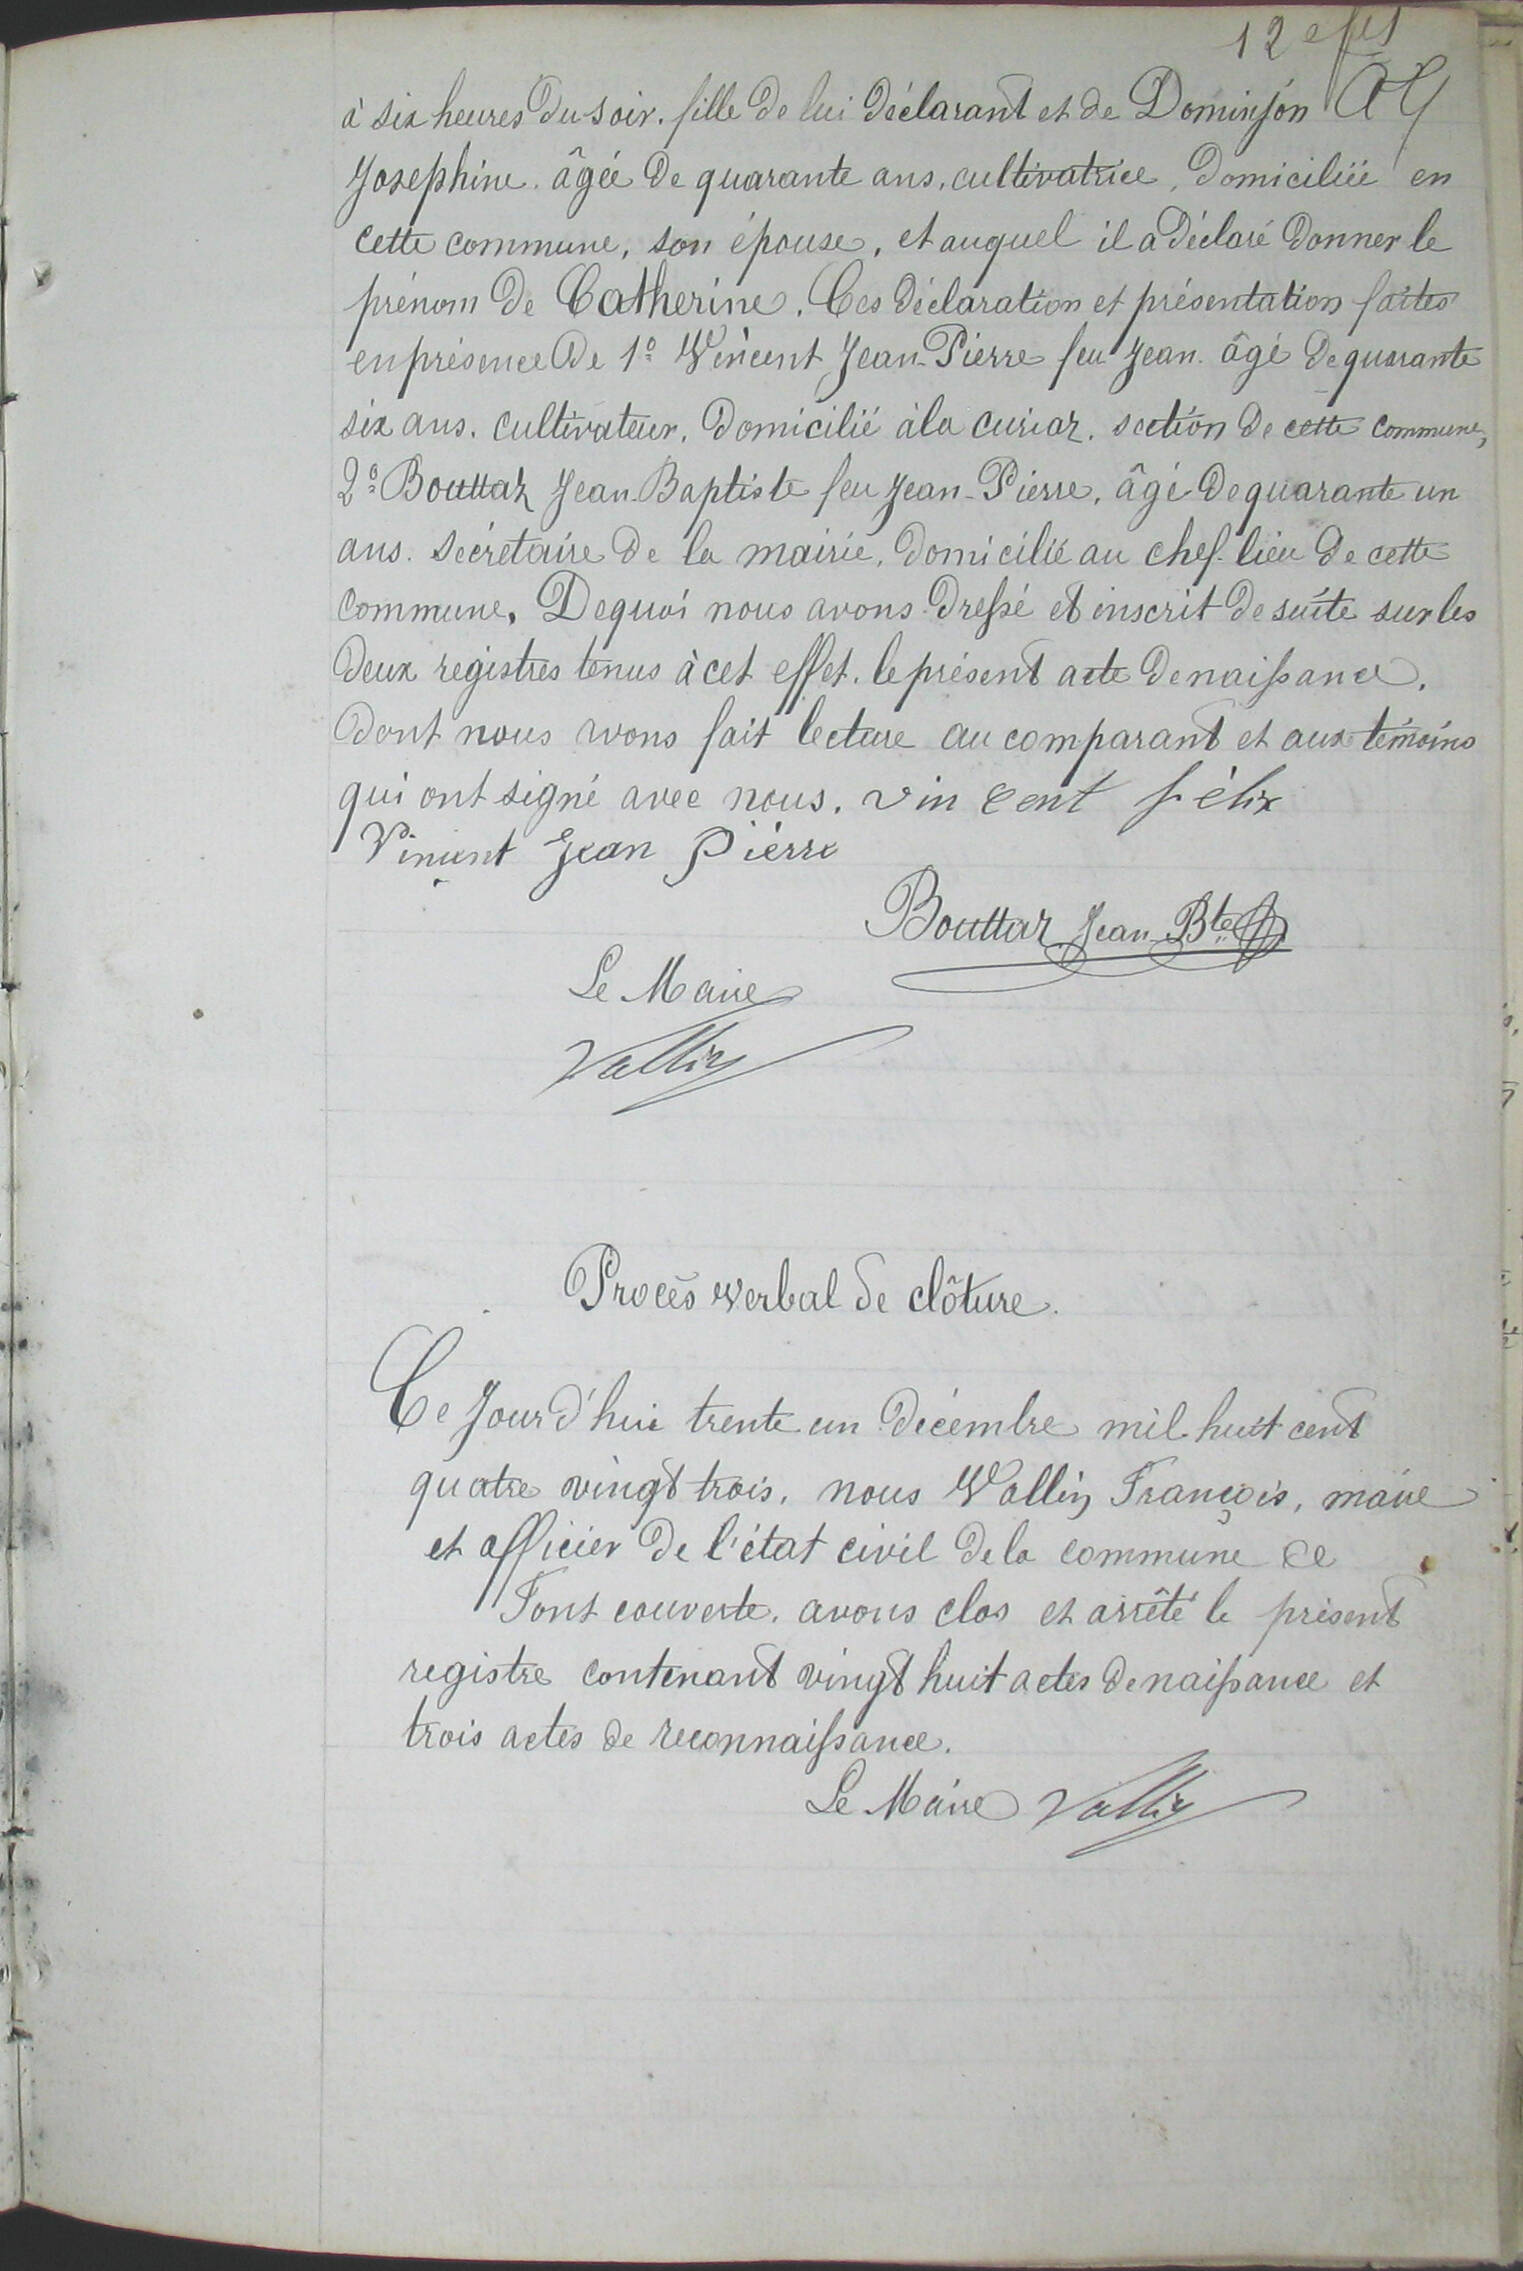 12
à six heures du soir. fille de lui déclarant et de Dominjon
Josephine. âgée de quarante ans, cultivatrice, domiciliée en
cette commune, son épouse, et auquel il a déclaré donner le
prénom de Catherine. Ces déclaration et présentation faites
en présence de 1º Vincent Jean-Pierre feu Jean. âgé de quarante
six ans. cultivateur, domicilié à la curiaz. section de cette commune,
2º Bouttaz Jean-Baptiste feu Jean-Pierre, âgé de quarante un
ans. Sécretaire de la mairie, domicilié au chef-lieu de cette
commune. De quoi nous avons dressé et inscrit de suite sur les
deux registres tenus à cet effet. le présent acte de naissance.
dont nous avons fait lecture au comparant et aux témoins
qui ont signé avec nous. vin cent félix
Vincent Jean Pierre
Bouttaz Jean-Bte
Le Maire
Vallin
Procès verbal de clôture.
Ce Jourd'hui trente un décembre mil huit cent
quatre vingt trois, nous Vallin François, maire
et officier de l'état civil de la commune de
Font couverte. avons clos et arrêté le présent
registre contenant vingt huit actes de naissance et
trois actes de reconnaissance.
Le Maire Vallin